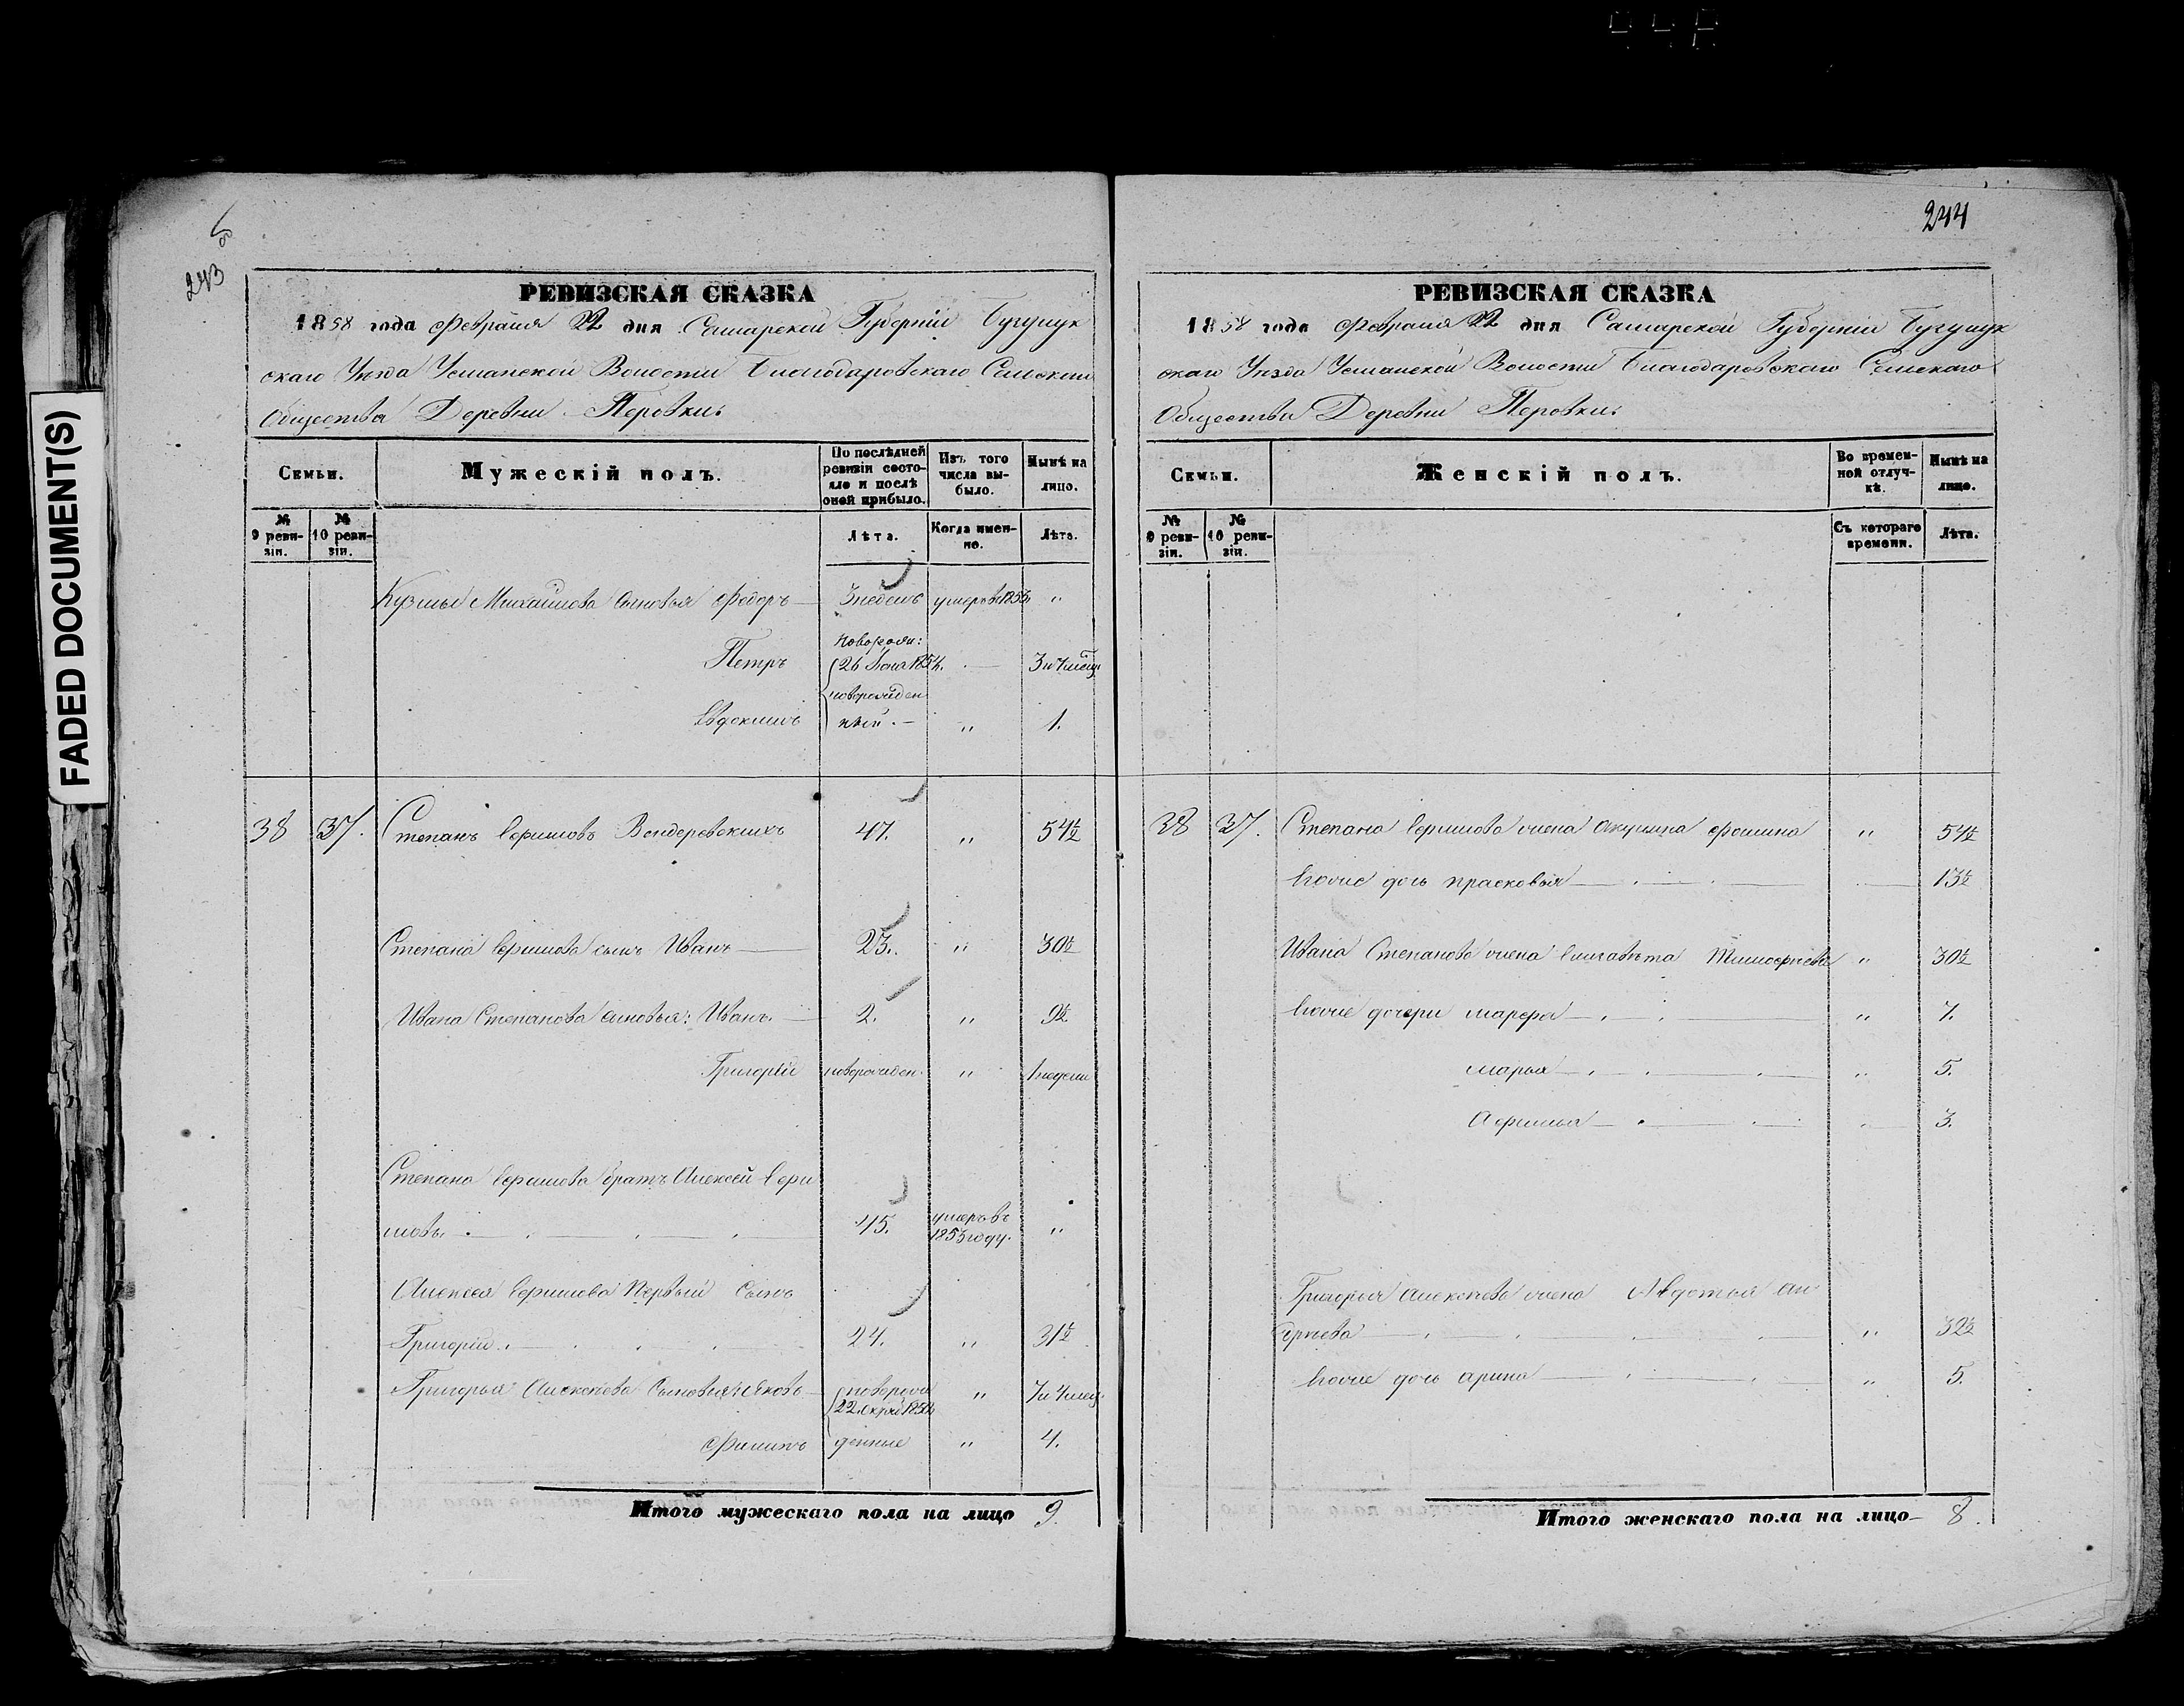 FADED DOCUMENT(S)
243
РЕВИЗСКАЯ СКАЗКА
1858 года Февраля 22 дня Самарской Губерніи Бугурук
скаго Уѣзда Усманской Волости Благодаровскаго Сельскаго
Общества Деревни Перовки.
Семьи.
Мужескій полъ.
По послѣдней ревизіи состояло и послѣ оной прибыло.
Изъ того числа выбыло.
Нынѣ на лицо.
№ 9 ревизіи.
№ 10 ревизіи.
Лѣта.
Когда именно.
Лѣта.
Кузьмы Михайлова сыновья Федоръ 3 недель умеръ в 185 "
Петръ новорожн: 26 1854. 3 и 7 мѣсц.
Евдокимъ новорожден ный. " 1.
38 37. Степанъ Ефимовъ 47. " 54½
Степана Ефимова сынъ Иванъ 23. " 30½
Ивана Степанова сыновья: Иванъ. 2. " 9½
Григорій новорожден. " 1 недели
Степана Ефимова братъ Алексей Ефи
мовъ. 45. умеръ въ 1853 году. "
Алексея Ефимова Первый сынъ
Григорій. 24. " 31½
Григорья Алексѣева сыновья: Яковъ новорож 22 185 " 7 и 4 мец.
Филипъ денные " 4.
Итого мужескаго пола на лицо 9.
244
РЕВИЗСКАЯ СКАЗКА
1858 года Февраля 22 дня Самарской Губерніи Бугурук
скаго Уѣзда Усманской Волости Благодаровскаго Сельскаго
Общества Деревни Перовки.
Семьи.
Женскій полъ.
Во временной отлучкѣ.
Нынѣ на лицо.
№ 9 ревизіи.
№ 10 ревизіи.
Съ котораго времени.
Лѣта.
38 37. Степана Ефимова жена Акулина Фомина " 54½
Егоже дочь прасковья 13½
Ивана Степанова жена Елизавѣта Тимофѣева " 30½
Егоже дочери марфа " 7.
марья " 5.
Афимья 3.
Григорья Алексѣева жена Авдотья Ан
дрѣева " 32½
Егоже дочь арина " 5.
Итого женскаго пола на лицо 8.